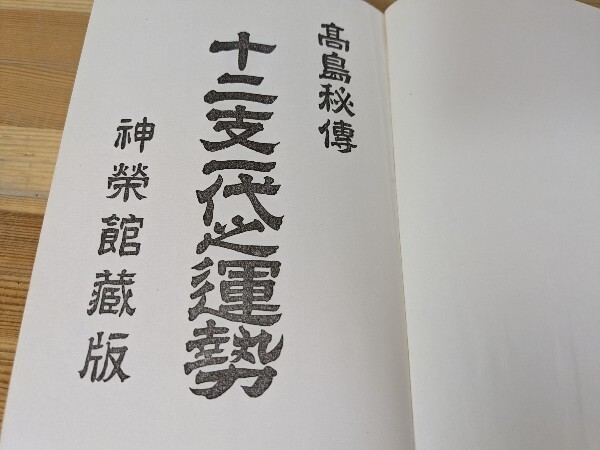 髙島秘傳
十二支一代之運勢
神榮館藏版